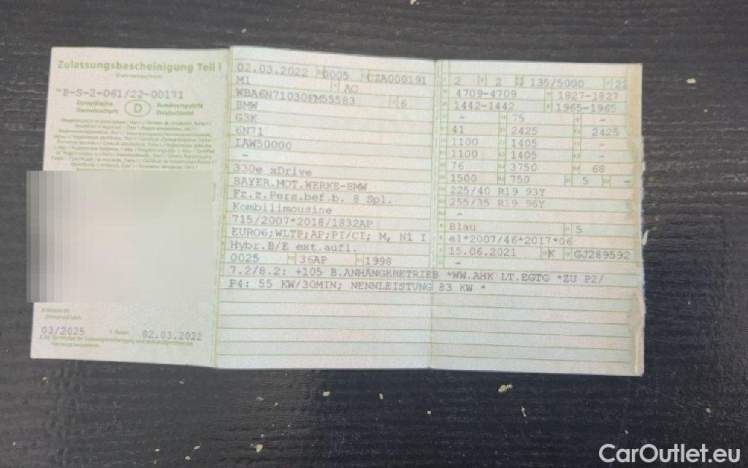 Zulassungsbescheinigung Teil I
Europäische
Gemeinschaft
D
Bundesrepublik
Deutschland
03/2025
02.03.2022
02.03.2022 0005 CZA000191
M1 AC
6
BMW
G3K
6N71
IAW50000
-
330e xDrive
BAYER.MOT.WERKE-BMW
Fz.z.Pers.bef.b. 8 Spl.
Kombilimousine
715/2007*2018/1832AP
EURO6;WLTP;AP;PI/CI; M, N1 I
Hybr.B/E ext.aufl.
0025 36AP 1998
7.2/8.2: +105 B.ANHÄNGEBETRIEB *WW.AHK LT.EGTG *ZU P2/
P4: 55 KW/30MIN; NENNLEISTUNG 83 KW *
2 2 135/5000 21
4709-4709 1827-1827
1442-1442 1965-1965
- 75 -
41 2425 2425
1100 1405 -
1100 1405 -
76 3750 68
1500 750 5 -
225/40 R19 93Y
255/35 R19 96Y
-
Blau 5
e1*2007/46*2017*06
15.06.2021 K GJ289592
-
CarOutlet.eu